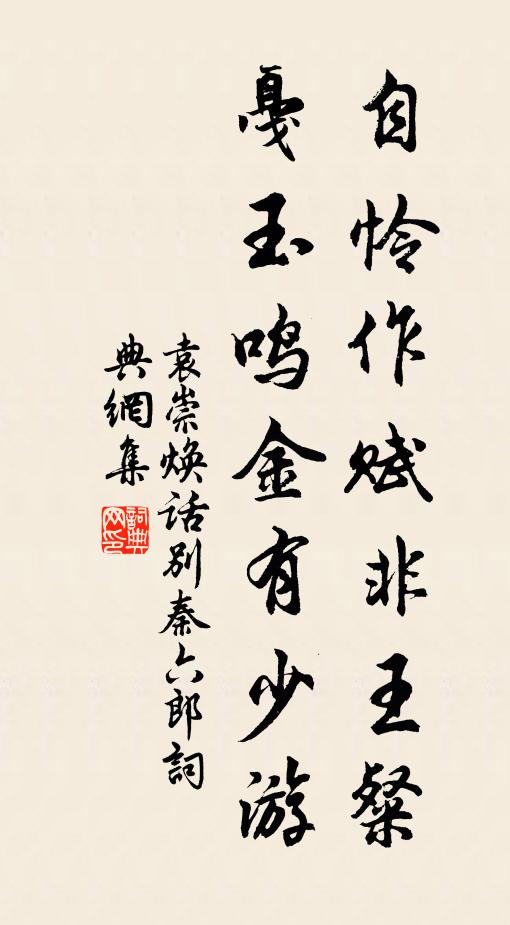 自怜作赋非王粲
戛玉鸣金有少游
袁崇焕话别秦六郎词
典網集
詞典網印